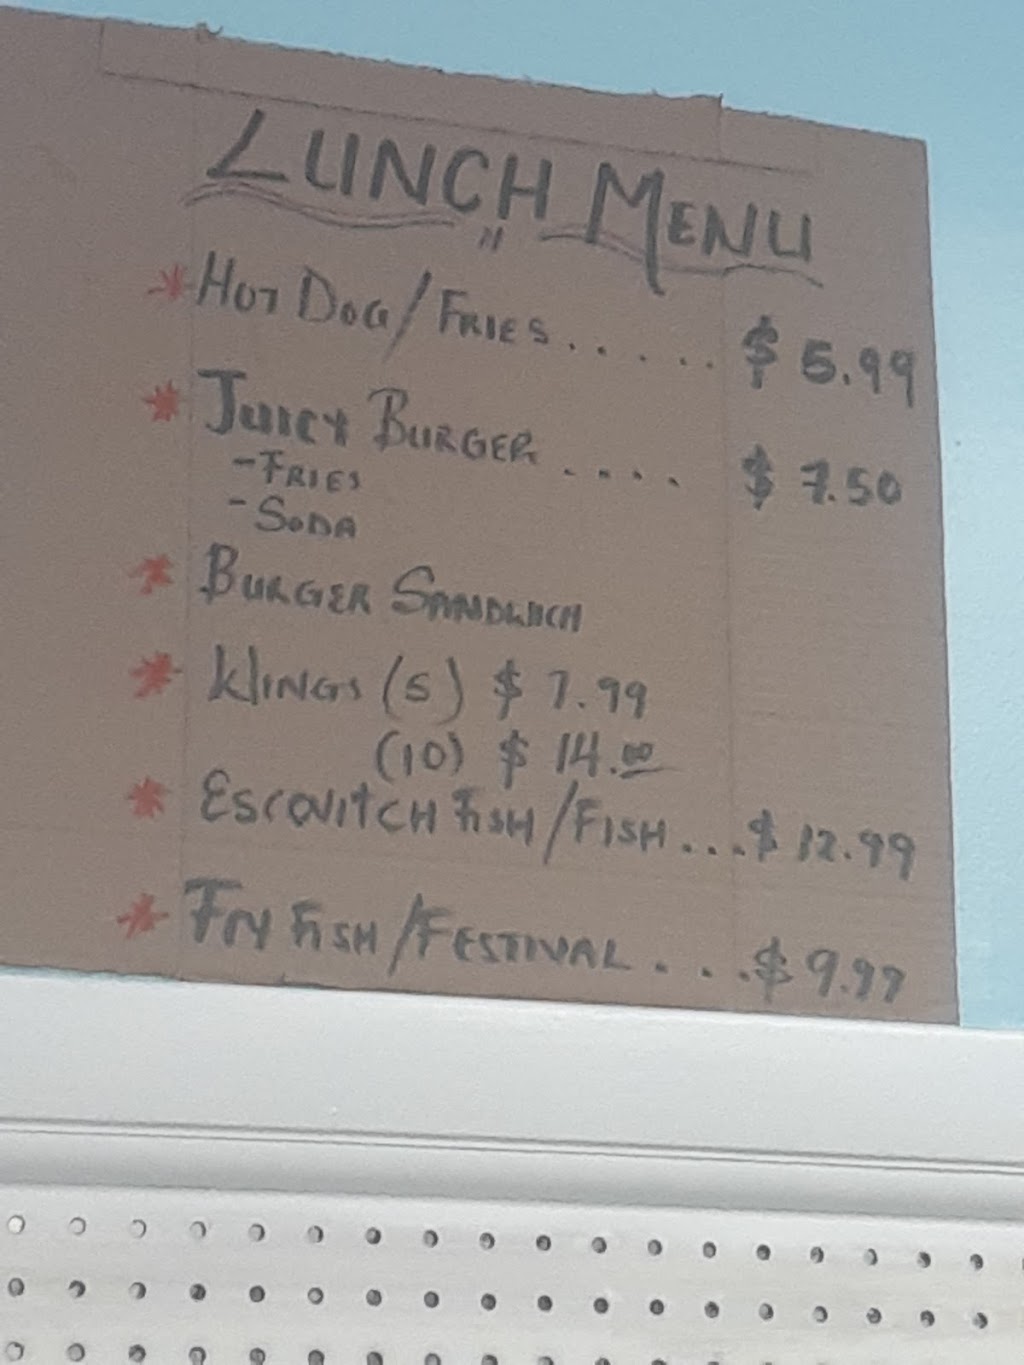 LUNCH MENU
"
* HOT DOG/FRIES..... $ 5.99
* JUICY BURGER .... $ 7.50
- FRIES
- SODA
* BURGER SANDWICH
* WINGS (5) $ 7.99
(10) $ 14.00
* ESCOVITCH FISH/FISH...$ 12.99
* FRY FISH/FESTIVAL...$ 9.97